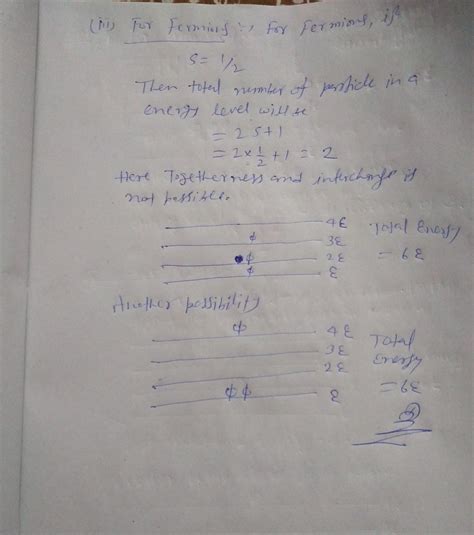 (iii) For Fermions :- For Fermions, if
S = 1/2
Then total number of particle in a
energy level will be
= 2S+1
= 2×1/2+1 = 2
Here Togetherness and interchange is
not possible.
4ε Total Energy
ϕ 3ε
ϕ 2ε = 6ε
ϕ ε
Another possibility
ϕ 4ε Total
3ε Energy
2ε
ϕϕ ε = 6ε